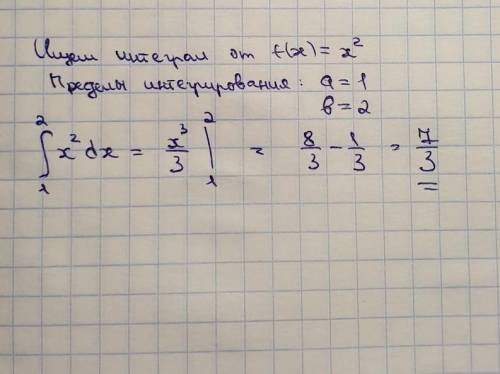 Ищем интеграл от f(x) = x²
Пределы интегрирования: a = 1
b = 2
∫₁² x² dx = x³/3 |₁² = 8/3 - 1/3 = 7/3